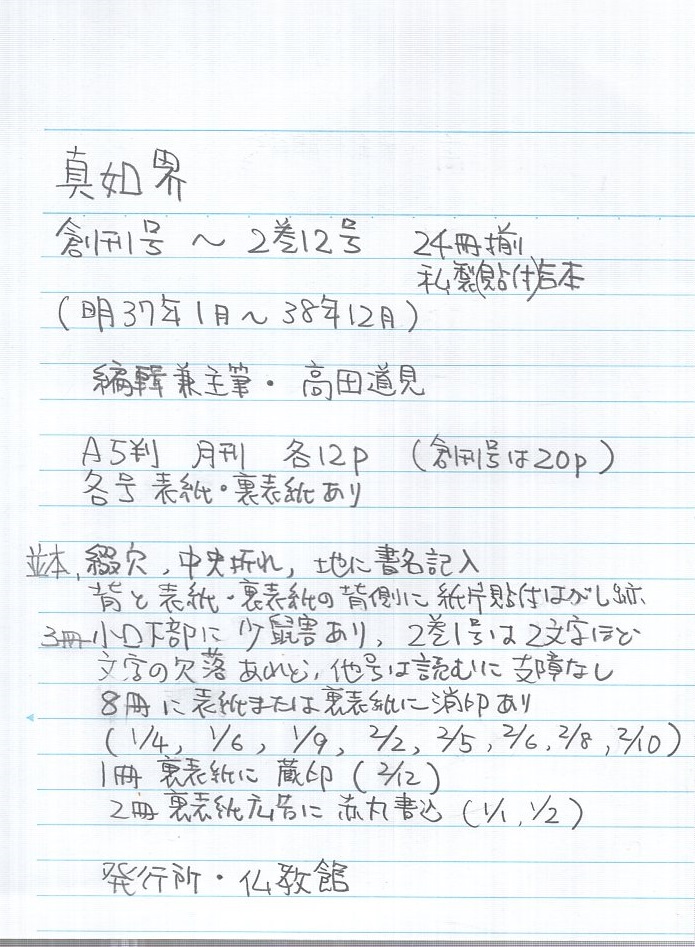 真如界
創刊1号 ～ 2巻12号 24冊揃
私製(貼付)合本
(明37年1月～38年12月)
編輯兼主筆・高田道見
A5判 月刊 各12p (創刊号は20p)
各号 表紙・裏表紙あり
並本, 綴穴, 中央折れ, 地に書名記入
背と表紙・裏表紙の背側に紙片貼付はがし跡
3冊小口下部に少鼠害あり, 2巻1号は2文字ほど
文字の欠落あれど, 他号は読むに支障なし
8冊に表紙または裏表紙に消印あり
(1/4, 1/6, 1/9, 2/2, 2/5, 2/6, 2/8, 2/10)
1冊 裏表紙に蔵印 (2/12)
2冊 裏表紙広告に赤丸書込 (1/1, 1/2)
発行所・仏教館